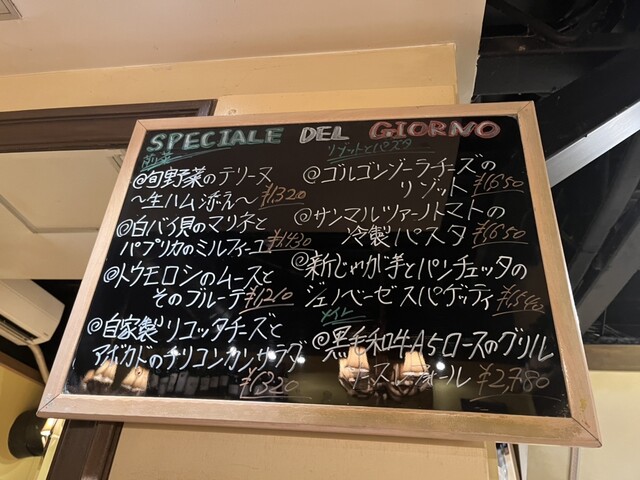 SPECIALE DEL GIORNO
前菜
@旬野菜のテリーヌ
～生ハム添え～ ¥1320
@白バイ貝のマリネと
パプリカのミルフィーユ ¥1430
@トウモロコシのムースと
そのブルーテ ¥1210
@自家製リコッタチーズと
アボカドのチリコンカンサラダ
¥1320
リゾットとパスタ
@ゴルゴンゾーラチーズの
リゾット ¥1650
@サンマルツァーノトマトの
冷製パスタ ¥1650
@新じゃが芋とパンチェッタの
ジェノベーゼスパゲッティ ¥1540
メイン
@黒毛和牛A5ロースのグリル
ォール ¥2,780